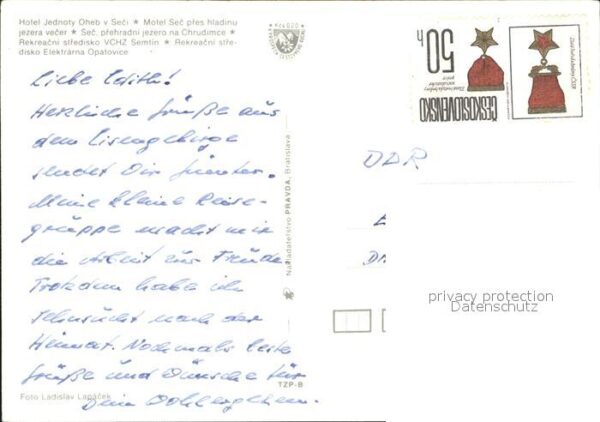 Hotel Jednoty Oheb v Seči • Motel Seč přes hladinu
jezera večer • Seč, přehradní jezero na Chrudimce •
Rekreační středisko VCHZ Semtín • Rekreační stře-
disko Elektrárna Opatovice
Liebe Edith!
Herzliche Grüße aus
dem Eisengebirge
sendet Dir Günter.
Meine kleine Reise-
gruppe macht mir
die Arbeit zur Freude.
Trotzdem habe ich
Sehnsucht nach der
Heimat. Nochmals beste
Grüße und Wünsche für
Dein Wohlergehen.
Foto Ladislav Lapáček
TZP-B
Nakladatelství PRAVDA, Bratislava
50 h
ČESKOSLOVENSKO
DDR
privacy protection
Datenschutz